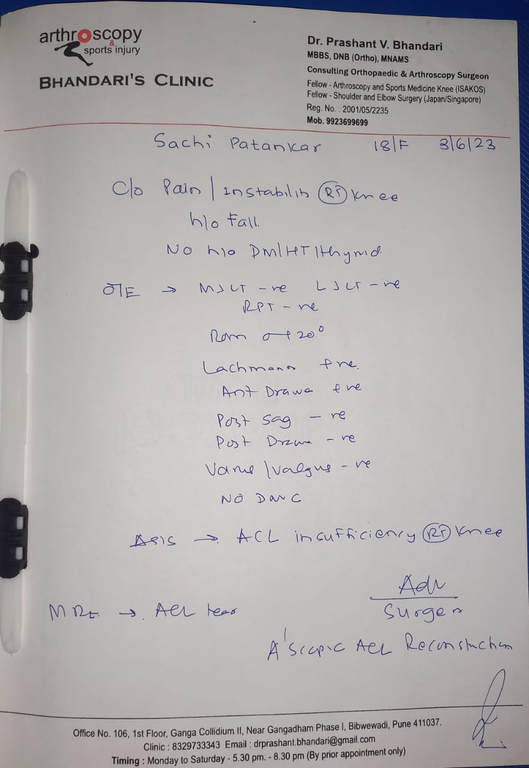 arthroscopy
& sports injury
BHANDARI'S CLINIC
Dr. Prashant V. Bhandari
MBBS, DNB (Ortho), MNAMS
Consulting Orthopaedic & Arthroscopy Surgeon
Fellow - Arthroscopy and Sports Medicine Knee (ISAKOS)
Fellow - Shoulder and Elbow Surgery (Japan/Singapore)
Reg. No. : 2001/05/2235
Mob. 9923699699
Sachi Patankar 18/F 3/6/23
C/o Pain / Instability RT Knee
h/o Fall
No h/o DM/HT/thyroid
O/E → MJLT -ve LJLT -ve
RPT -ve
Rom
Lachmann +ve
Ant Drawer +ve
Post Sag -ve
Post Drawer -ve
Varus / Valgus -ve
NO DNVC
→ ACL insufficiency RT Knee
MRI → ACL tear
Adv
Surgery
A'scopic ACL Reconstruction
Office No. 106, 1st Floor, Ganga Collidium II, Near Gangadham Phase I, Bibwewadi, Pune 411037.
Clinic : 8329733343 Email : drprashant.bhandari@gmail.com
Timing : Monday to Saturday - 5.30 pm. - 8.30 pm (By prior appointment only)